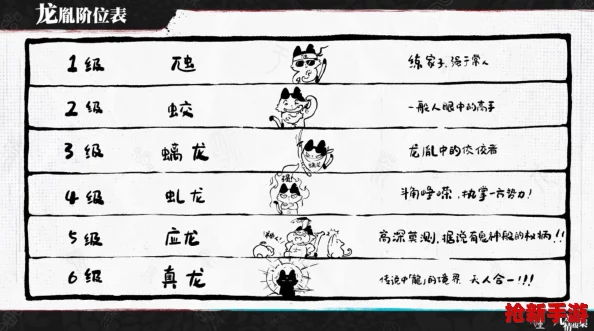 龙胤阶位表
1级 虺 练家子,强于常人
2级 蛟 一般人眼中的高手
3级 螭龙 龙胤中的佼佼者
4级 虬龙 头角峥嵘,执掌一方势力!
5级 应龙 高深莫测,据说有鬼神般的权柄!!
6级 真龙 传说中「龍」的境界 天人合一!!!
抢新手游